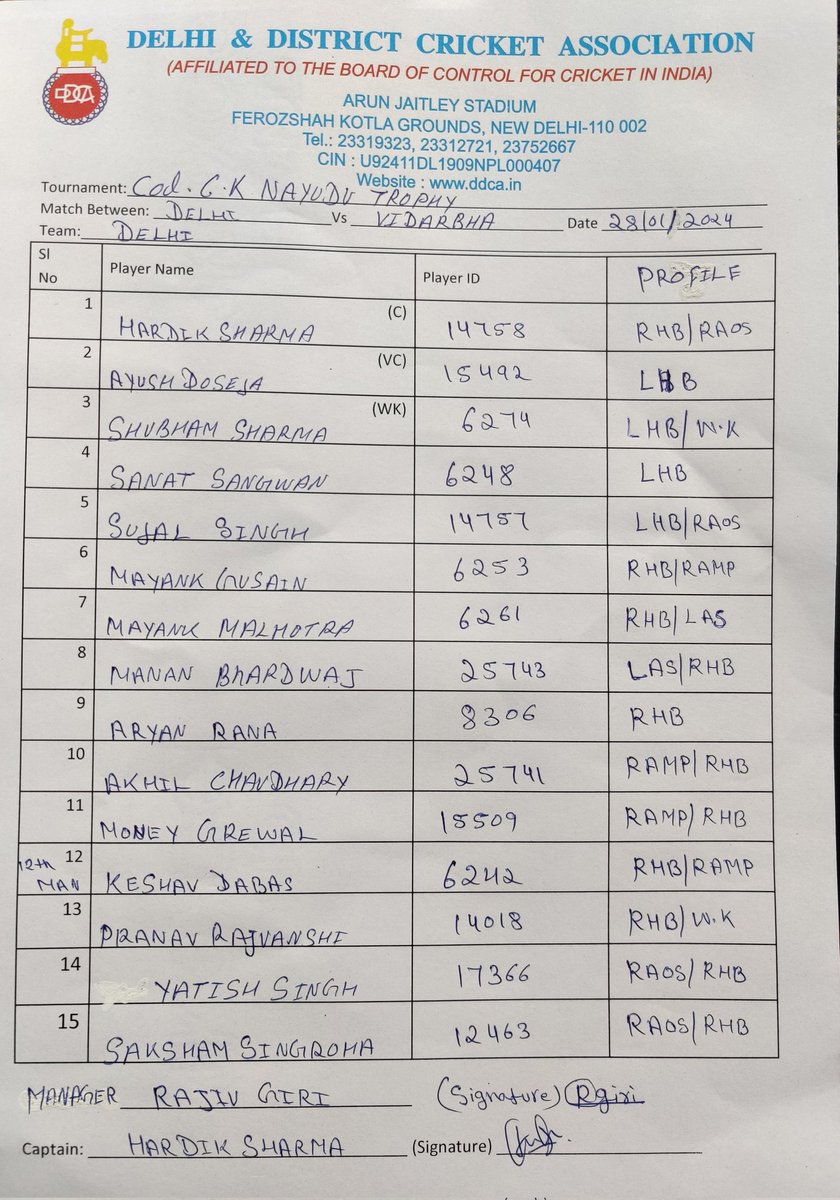 DDCA
DELHI & DISTRICT CRICKET ASSOCIATION
(AFFILIATED TO THE BOARD OF CONTROL FOR CRICKET IN INDIA)
ARUN JAITLEY STADIUM
FEROZSHAH KOTLA GROUNDS, NEW DELHI-110 002
Tel.: 23319323, 23312721, 23752667
CIN : U92411DL1909NPL000407
Website : www.ddca.in
Tournament: Col. C.K NAYUDU TROPHY
Match Between: DELHI Vs VIDARBHA Date 28/01/2024
Team: DELHI
Sl No Player Name Player ID PROFILE
1 HARDIK SHARMA (C) 14758 RHB/RAOS
2 AYUSH DOSEJA (VC) 15492 LHB
3 SHUBHAM SHARMA (WK) 6274 LHB/W.K
4 SANAT SANGWAN 6248 LHB
5 SUJAL SINGH 14757 LHB/RAOS
6 MAYANK GUSAIN 6253 RHB/RAMP
7 MAYANK MALHOTRA 6261 RHB/LAS
8 MANAN BHARDWAJ 25743 LAS/RHB
9 ARYAN RANA 8306 RHB
10 AKHIL CHAUDHARY 25741 RAMP/RHB
11 MONEY GREWAL 15509 RAMP/RHB
12th MAN 12 KESHAV DABAS 6242 RHB/RAMP
13 PRANAV RAJVANSHI 14018 RHB/W.K
14 YATISH SINGH 17366 RAOS/RHB
15 SAKSHAM SINGROHA 12463 RAOS/RHB
MANAGER RAJIV GIRI (Signature) Rgiri
Captain: HARDIK SHARMA (Signature)